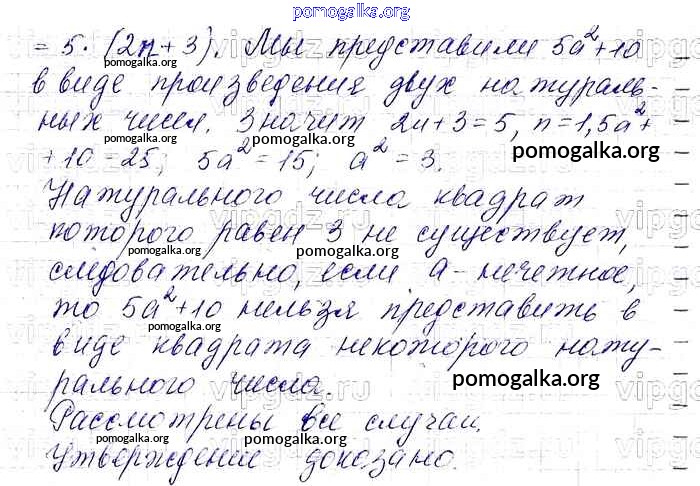 pomogalka.org
= 5 · (2n + 3). Мы представили 5a² + 10
pomogalka.org
в виде произведения двух натураль-
pomogalka.org
ных чисел. Значит 2n + 3 = 5, n = 1, 5a² +
pomogalka.org
+ 10 = 25; 5a² = 15; a² = 3.
pomogalka.org
pomogalka.org
Натурального числа квадрат
которого равен 3 не существует,
pomogalka.org
pomogalka.org
следовательно, если a - нечетное,
то 5a² + 10 нельзя представить в
pomogalka.org
виде квадрата некоторого нату-
рального числа.
pomogalka.org
Рассмотрены все случаи.
pomogalka.org
pomogalka.org
Утверждение доказано.